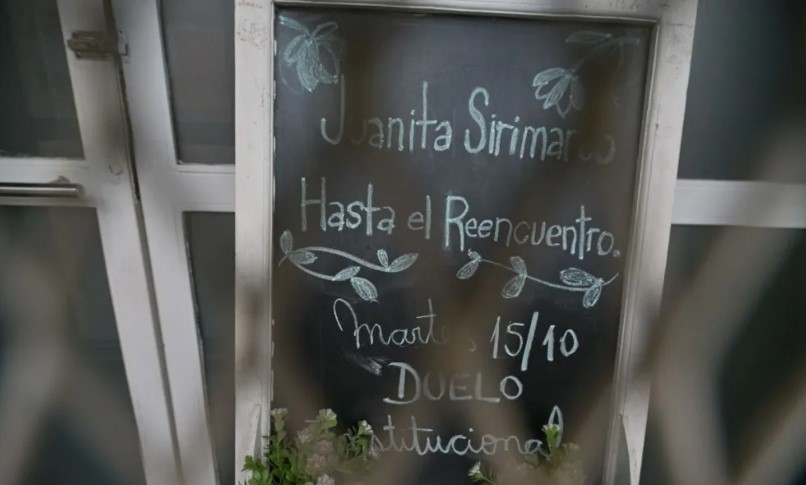 Juanita Sirimarco
Hasta el Reencuentro.
Martes 15/10
DUELO
institucional